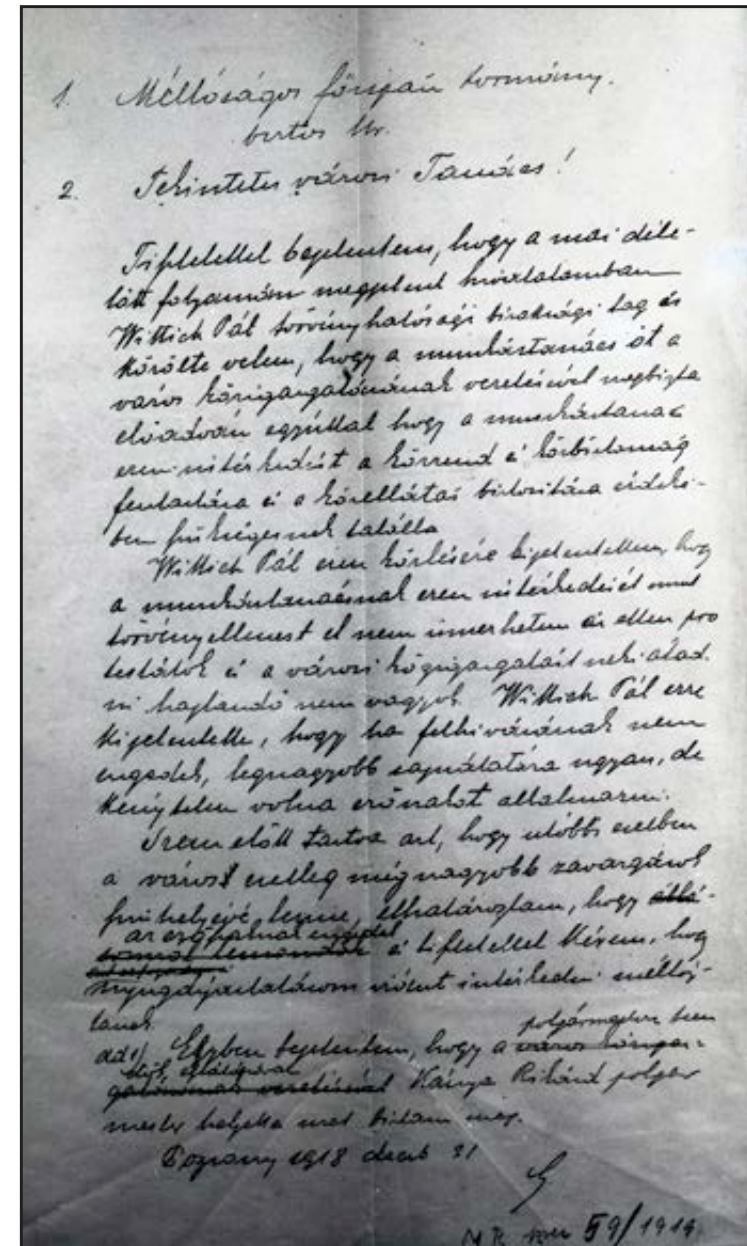 1. Méltóságos főispán kormány-
biztos Ur.
2. Tekintetes városi Tanács!
Tisztelettel bejelentem, hogy a mai déle-
lőtt folyamán megjelent hivatalomban
Wittich Pál törvényhatósági bizottsági tag és
közölte velem, hogy a munkástanács őt a
város közigazgatásának vezetésével megbizta
előadván egyúttal hogy a munkástanács
ezen intézkedését a közrend és közbiztonság
fentartása és a közellátás biztosítása érdeké-
ben szükségesnek találta
Wittich Pál ezen közlésére kijelentettem, hogy
a munkástanácsnak ezen intézkedését mint
törvényellenest el nem ismerhetem az ellen pro
testálok és a városi közigazgatást neki átad
ni hajlandó nem vagyok. Wittich Pál erre
kijelentette, hogy ha felhivásának nem
engedek, legnagyobb sajnálatára ugyan, de
kénytelen volna erőszakot alkalmazni.
Szem előtt tartva azt, hogy utóbbi esetben
a város esetleg még nagyobb zavargások
szinhelyévé lenne, elhatároztam, hogy állá-
az erőszaknak engedek
somról lemondok és tisztelettel kérem, hogy
nyugdijaztatásom iránt intézkedni méltóz-
tassanak
polgármesteri
ad 1) Egyben bejelentem, hogy a város közigaz-
gatásának vezetésével Kánya Rihárd polgár
mester helyettes urat biztam meg.
Pozsony 1918 decb 31
59/1919